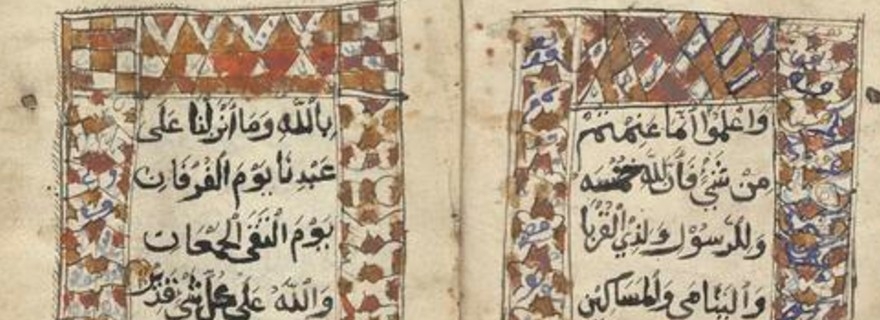 وَاعْلَمُوا أَنَّمَا غَنِمْتُمْ
مِنْ شَيْءٍ فَأَنَّ لِلَّهِ خُمُسَهُ
وَلِلرَّسُولِ وَلِذِي الْقُرْبَا
وَالْيَتَامَى وَالْمَسَاكِينِ
بِاللَّهِ وَمَا أَنْزَلْنَا عَلَى
عَبْدِنَا يَوْمَ الْفُرْقَانِ
يَوْمَ الْتَقَى الْجَمْعَانِ
وَاللَّهُ عَلَى كُلِّ شَيْءٍ قَدِيرٌ